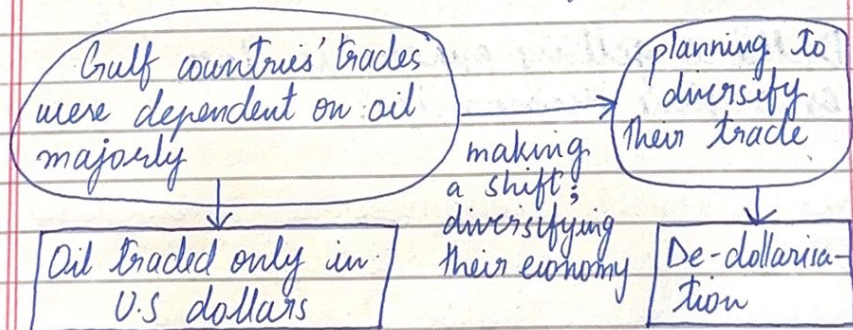 Gulf countries' trades
were dependent on oil
majorly
making
a shift;
diversifying
their economy
planning to
diversify
their trade
Oil traded only in
U.S dollars
De-dollarisa-
tion